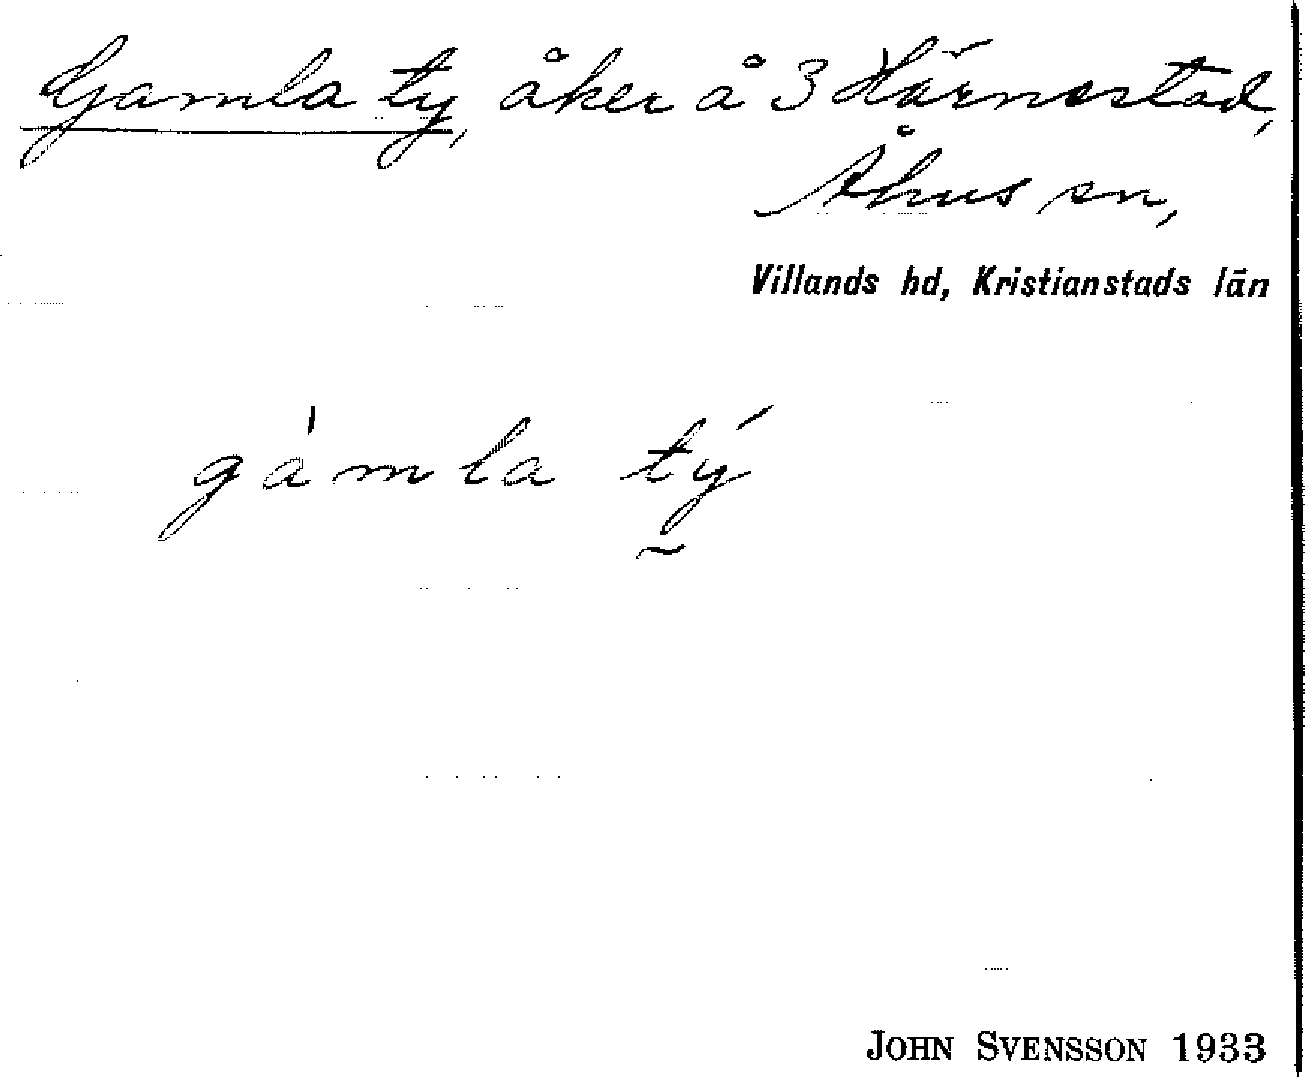 Gamla ty, åker å 3 Härnestad,
Åhus sn,
Villands hd, Kristianstads län
gàmla tý
JOHN SVENSSON 1933